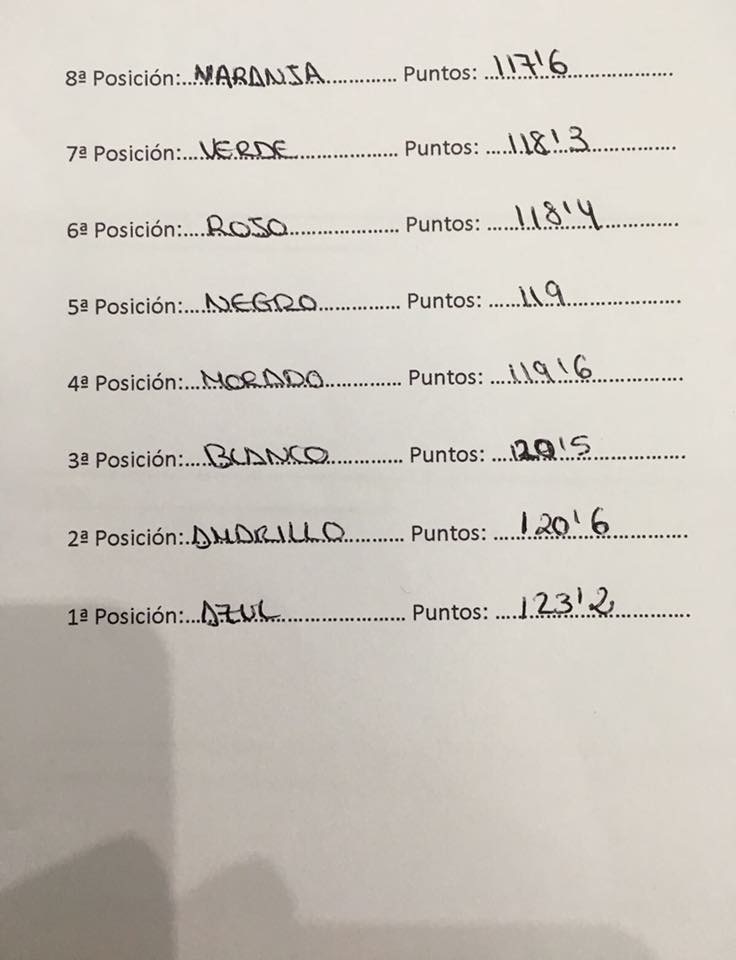 8ª Posición:...NARANJA............ Puntos: ...117'6......................
7ª Posición:...VERDE................. Puntos: ....118'3..................
6ª Posición:....ROJO................... Puntos: ......118'4................
5ª Posición:....NEGRO............... Puntos: ......119......................
4ª Posición:...MORADO.............. Puntos: ....119'6...................
3ª Posición:....BLANCO.............. Puntos: ....120'5...................
2ª Posición:..AMARILLO............ Puntos: .....120'6................
1ª Posición:...AZUL...................... Puntos: .....123'2................